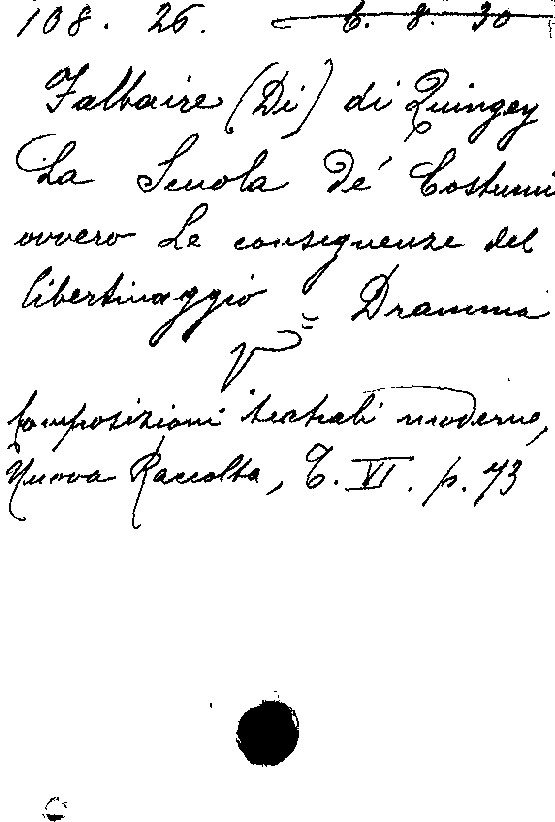 108. 26. 6. 8. 30
Falbaire (Di) di Quingey
La Scuola De' Costumi
ovvero Le conseguenze del
libertinaggio = Dramma
Composizioni teatrali moderne,
Nuova Raccolta, T. VI. p. 73